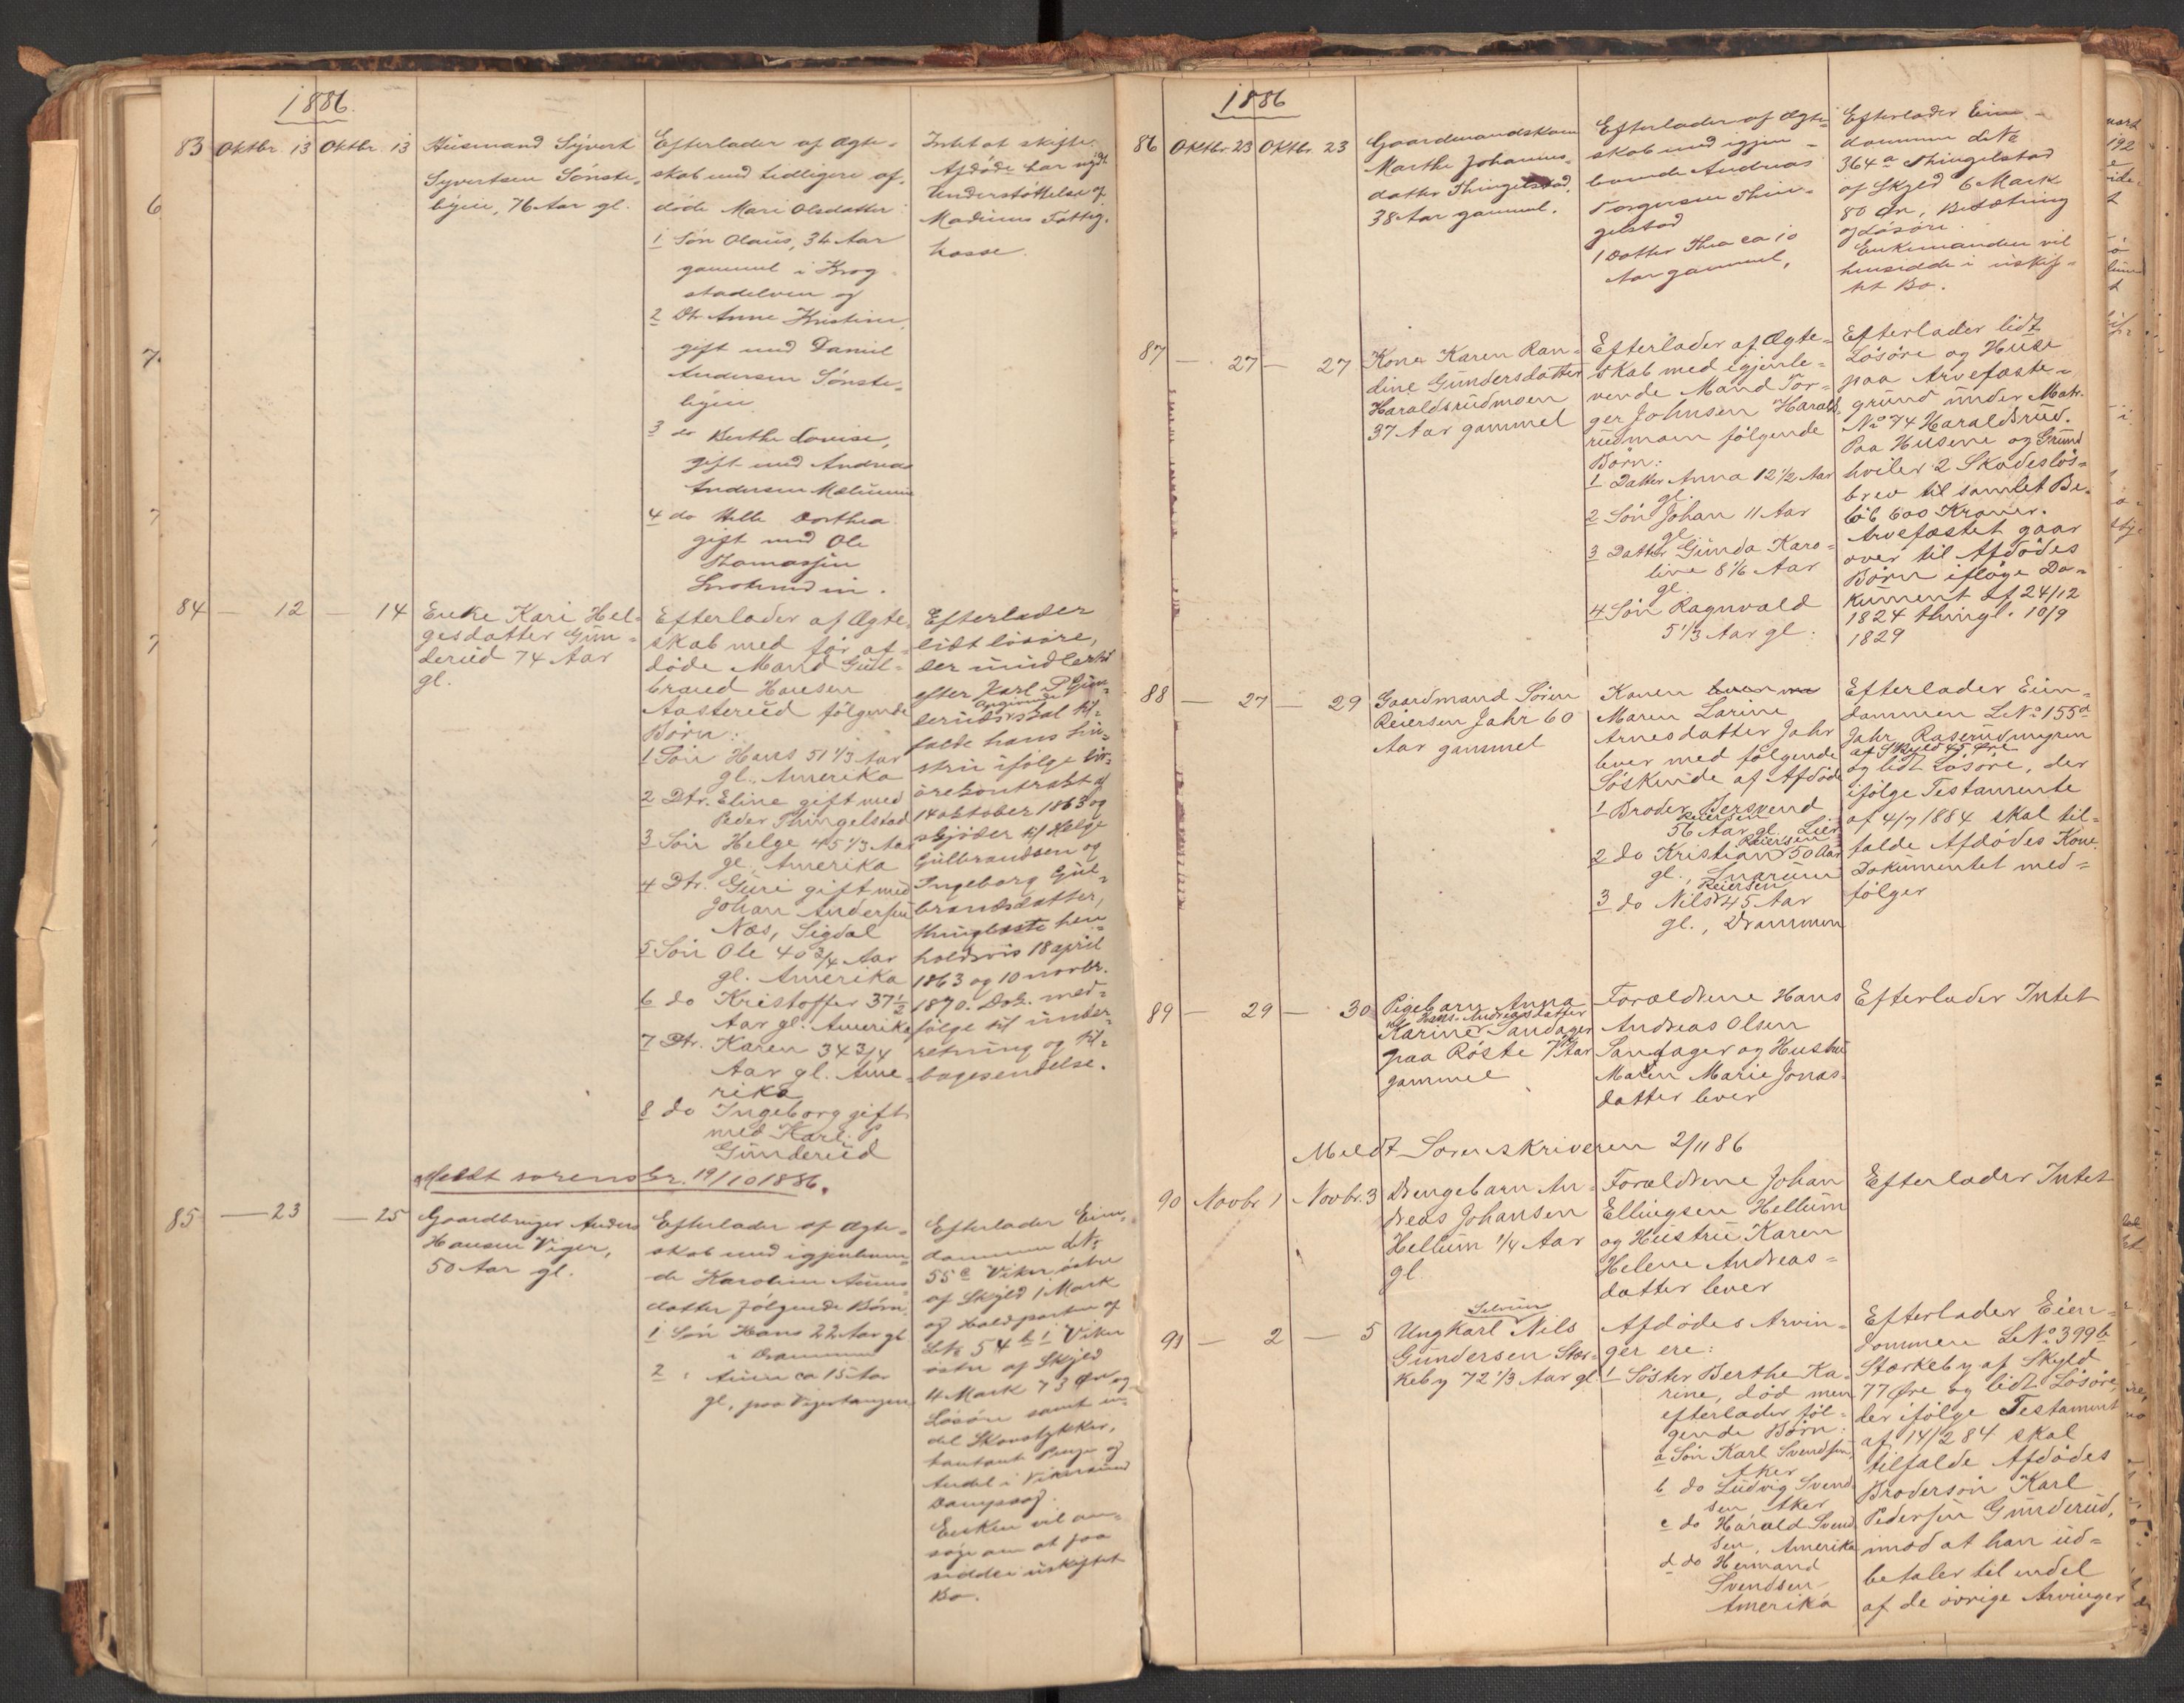 1886.
83 Oktbr. 13 Oktbr. 13
Husmand Syvert
Syvertsen Sönste-
byen, 76 Aar gl.
Efterlader af Ægte-
skab med tidligere af-
döde Mari Olsdatter:
1 Sön Olaus, 36 Aar
gammel i Krog-
stadelven og
2 Dtr Anne Kristine,
gift med Daniel
Andersen Sönste-
byen
3 do Berthe Lovise,
gift med Andreas
Andersen
4 do Helle Dorthea
gift med Ole
Thomassen
Intet at skifte.
Afdöde har nydt
Understöttelse af
Modums Fattig-
kasse.
84 — 12 — 14
Enke Kari Hel-
gesdatter Gun-
derud 74 Aar
gl.
Efterlader af Ægte-
skab med för af-
döde Mand Gul-
brand Hansen
Aasterud fölgende
Börn:
1 Sön Hans 51 1/3 Aar
gl., Amerika
2 Dtr. Eline gift med
Peder Thingelstad
3 Sön Helge 45 1/3 Aar
gl., Amerika
4 Dtr. Guri gift med
Johan Andersen
Næs, Sigdal
5 Sön Ole 40 3/4 Aar
gl. Amerika
6 do Kristoffer 37 1/2
Aar gl. Amerika
7 Dtr. Karen 34 3/4
Aar gl. Ame-
rika
8 do Ingeborg gift
med Karl P
Gunderud
Efterlader
lidt lösöre,
der imidlertid
efter Karl P Gun-
deruds Opgivende skal til-
falde hans Hu-
stru ifölge
örekontrakt af
14 oktober 1863 og
skjöder til Helge
Gulbrandsen og
Ingeborg Gul-
brandsdatter,
thinglæste hen-
holdsvis 18 april
1863 og 10 novbr.
1870. Dok. med-
fölge til under-
retning og til-
bagesendelse.
Meldt sorenskr. 19/10 1886.
85 — 23 — 25
Gaardbruger Anders
Hansen Viger,
50 Aar gl.
Efterlader af Ægte-
skab med igjenleven-
de Karoline
datter fölgende Börn
1 Sön Hans 22 Aar gl
i Drammen
2 " ca 15 Aar
gl., paa Vigertangen
Efterlader Eien-
dommen LNo
55 c Viker östre
af Skyld 1 Mark
og Halvparten af
LNo 54 b 1 Viker
östre af Skyld
4 Mark 73 Öre og
Lösöre samt en
del Skovstykker,
kontant Penge og
Andel i Vikersund
Dampsag.
Enken vil an-
söge om at faa
sidde i uskiftet
Bo.
1886
86 Oktbr. 23 Oktbr. 23
Gaardmandskone
Marthe Johannes-
datter Thingelstad,
38 Aar gammel.
Efterlader af Ægte-
skab med igjen-
levende Andreas
Torgersen Thin-
gelstad
1 Datter Thea ca 10
Aar gammel,
Efterlader Eien-
dommen LNo
364 a Thingelstad
af Skyld 6 Mark
80 Öre, Besætning
og Lösöre.
Enkemanden vil
hensidde i uskif-
tet Bo.
87 — 27 — 27
Kone Karen Ran-
dine Gundersdatter
Haraldsrudmoen
37 Aar gammel
Efterlader af Ægte-
skab med igjenle-
vende Mand Tor-
ger Johnsen Harald-
rudmoen fölgende
Börn:
1 Datter Anna 12 1/2 Aar
gl.
2 Sön Johan 11 Aar
gl
3 Datter Gunda Karo-
line 8 1/6 Aar
gl.
4 Sön Ragnvald
5 1/3 Aar gl:
Efterlader lidt
Lösöre og Huse
paa Arvefæste-
grund under Matr.
No 74 Haraldsrud.
Paa Husene og Grund
hviler 2 Skadeslös-
brev til samlet Be-
löb 600 Kroner.
Arvefæstet gaar
over til Afdödes
Börn iflöge Do-
kument af 24/12
1824 thingl. 10/9
1829
88 — 27 — 29
Gaardmand Sören
Reiersen Jahr 60
Aar gammel
Konen
Maren Larine
Arnesdatter Jahr
lever med fölgende
Söskende af Afdöde
1 Broder Bersvend
Reiersen
56 Aar gl. Lier
2 do Kristian Reiersen 50 Aar
gl., Snarum
3 do Nils Reiersen 45 Aar
gl., Drammen
Efterlader Eien-
dommen LNo 155 d
Jahr Raserudmyren
af Skyld 45 Öre
og lidt Lösöre, der
ifölge Testamente
af 4/7 1884 skal til-
falde Afdödes Kone.
Dokumentet med-
fölger
89 — 29 — 30
Pigebarn Anna
Karine Hans-Andreasdatter Sandager
paa Röste 7 Aar
gammel
Forældrene Hans
Andreas Olsen
Sandager og Hustru
Maren Marie Jonas-
datter lever
Efterlader Intet
Meldt Sorenskriveren 2/11 86
90 Novbr 1 Novbr. 3
Drengebarn An-
dreas Johansen
Hellum 1/4 Aar
gl
Forældrene Johan
Ellingsen Hellum
og Hustru Karen
Helene Andreas-
datter lever
Efterlader Intet
91 — 2 — 5
Ungkarl Nils
Gundersen Stær-
keby 72 1/3 Aar gl
Afdödes Arvin-
ger ere:
1 Söster Berthe Ka-
rine, död men
efterlader föl-
gende Börn:
a Sön Karl Svendsen,
Aker
b do Ludvig Svend-
sen Aker
c do Harald Svend-
sen, Amerika
d do Hermand
Svendsen
Amerika
Efterlader Eien-
dommen LNo 399 b
Stærkeby af Skyld
77 Öre og lidt Lösöre,
der ifölge Testament
af 14/2 84 skal
tilfalde Afdödes
Brodersön Karl
Pedersen Gunderud,
mod at han ud-
betaler til endel
af de övrige Arvinger